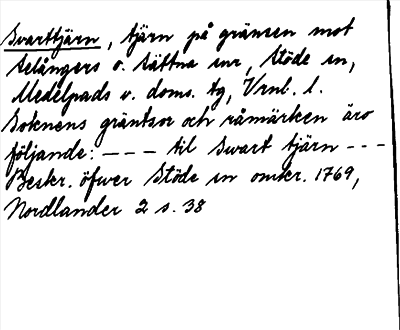 Svarttjärn, tjärn på gränsen mot
Selångers o. Sättna snr, Stöde sn,
Medelpads v. doms. tg, Vrnl. l.
Soknens gräntsor och råmärken äro
följande: --- til Swart tjärn ---
Beskr. öfwer Stöde sn omkr. 1769,
Nordlander 2 s. 38